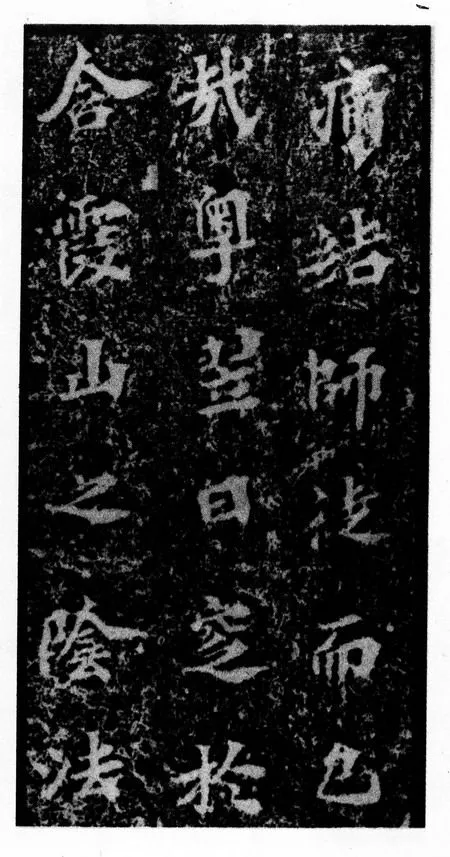 痛結師徒而已
哉粤翌日窆於
含霞山之陰法